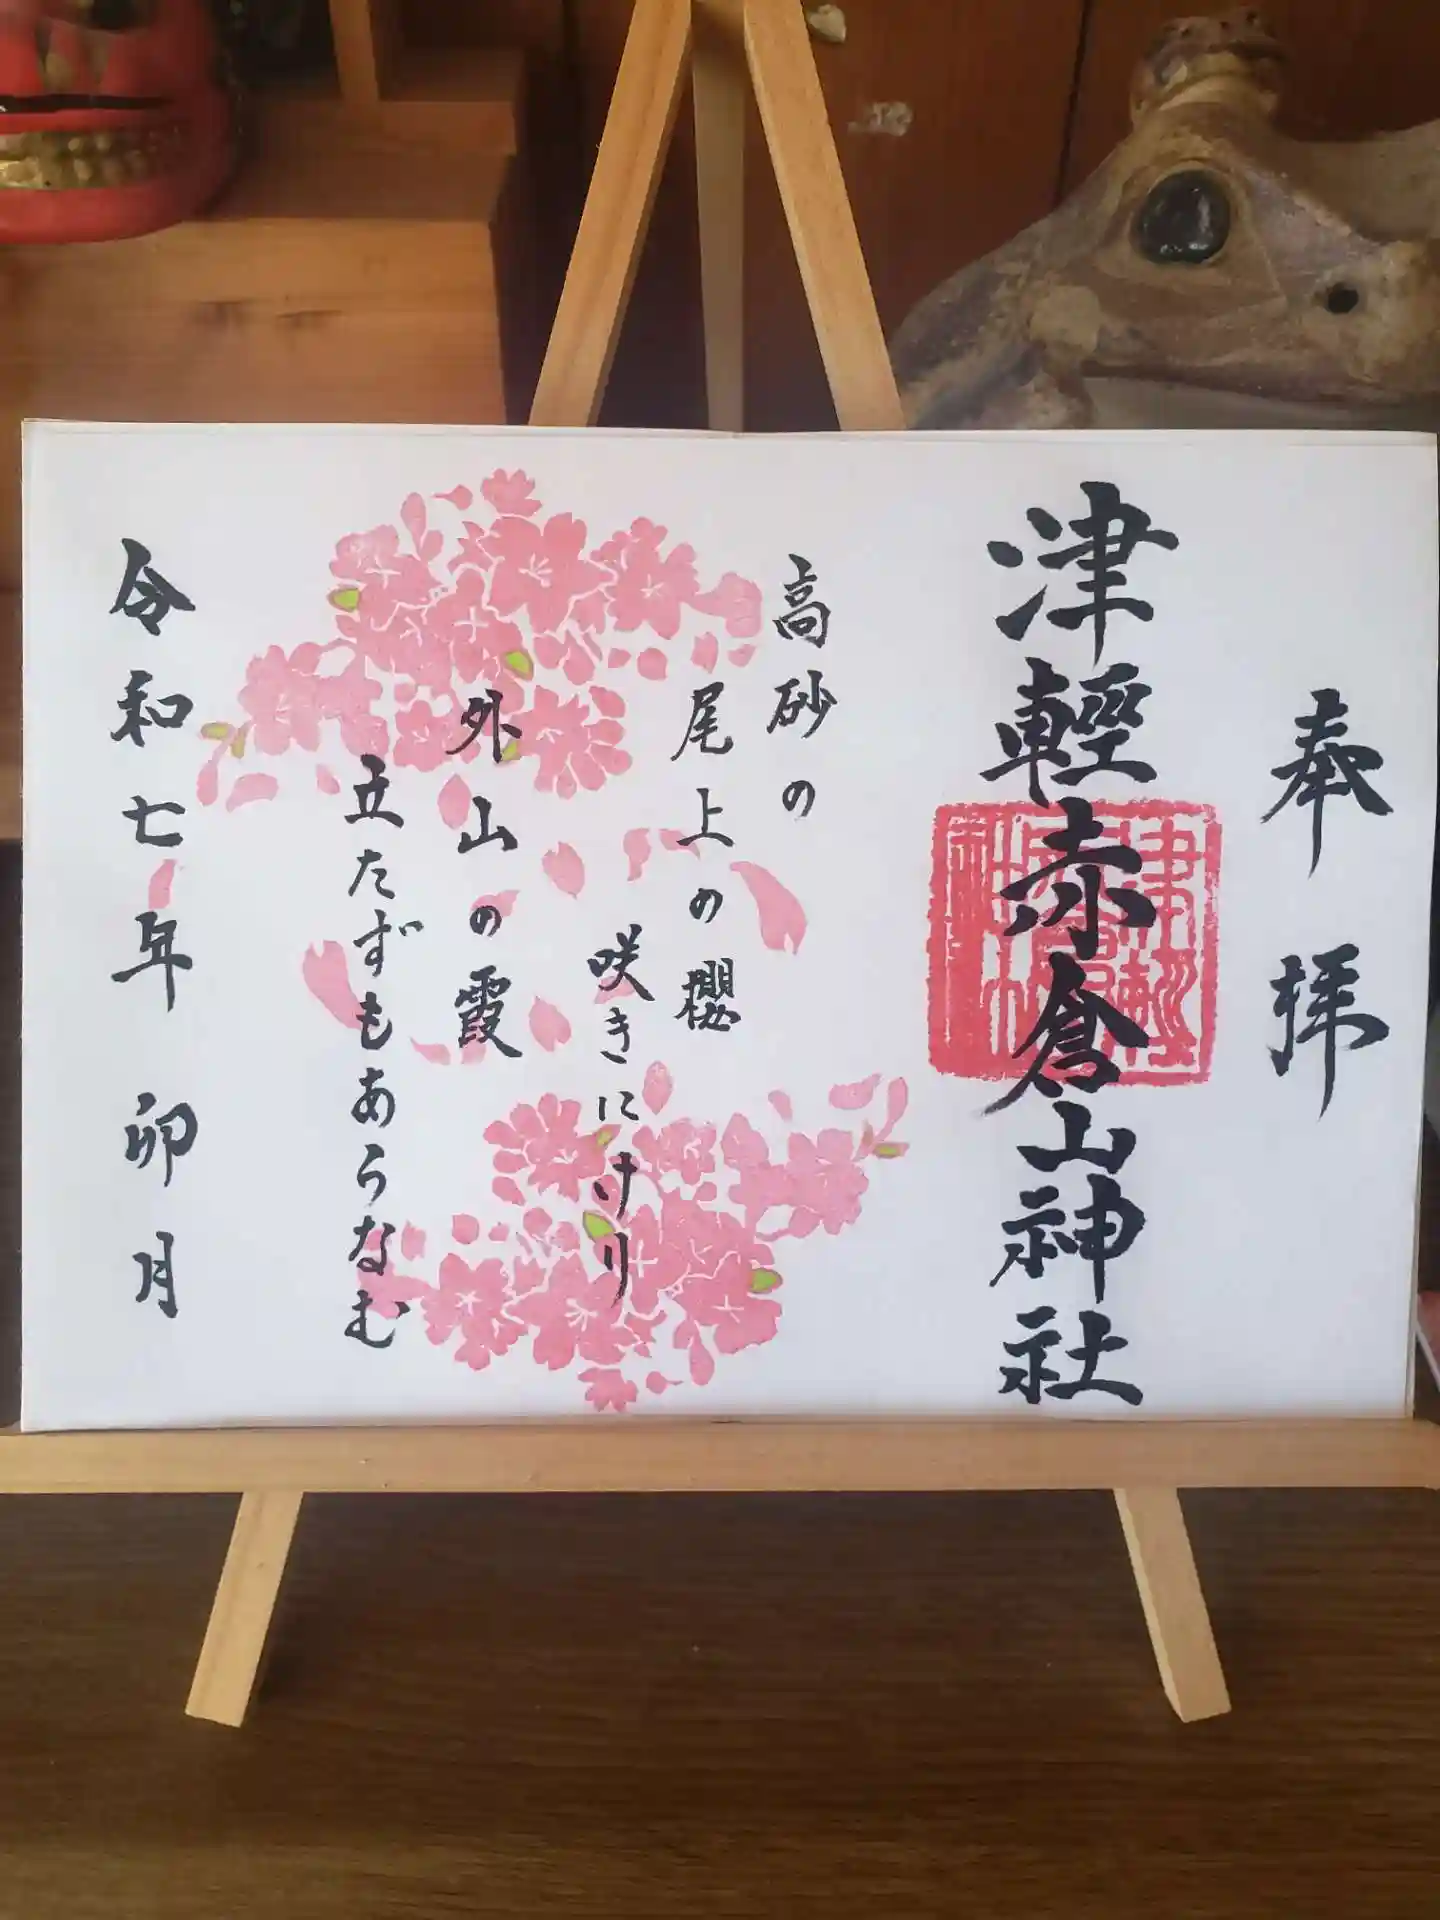 奉拝
津輕赤倉山神社
高砂の
尾上の櫻
咲きにけり
外山の霞
立たずもあらなむ
令和七年 卯月